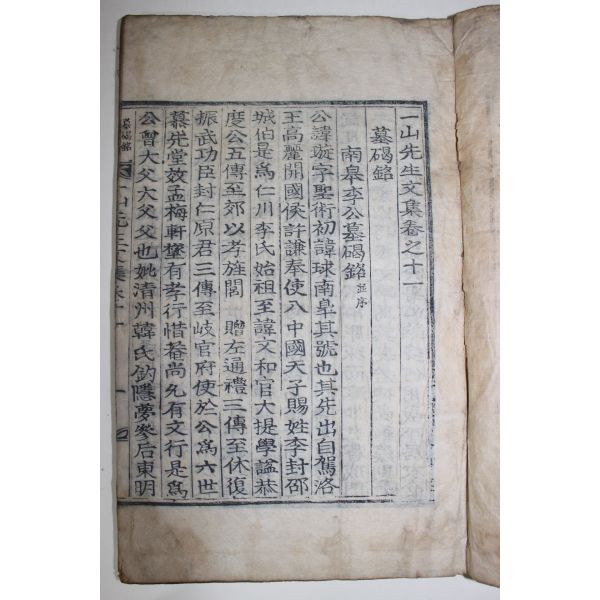 一山先生文集卷之十一
墓碣銘
南皐李公墓碣銘 並序
公諱璇字聖術初諱球南皐其號也其先出自駕洛
王高麗開國候許謙奉使入中國天子賜姓李封邵
城伯是爲仁川李氏始祖至諱文和官大提學謚恭
度公五傳至郊以孝旌閭 贈左通禮三傳至休復
振武功臣封仁原君三傳至岐官府使於公爲六世
慕先堂效孟梅軒堥有孝行惜菴尚允有文行是爲
公曾大父大父父也妣清州韓氏釣隱夢參后東明
墓碣銘 一山先生文集卷十一 一